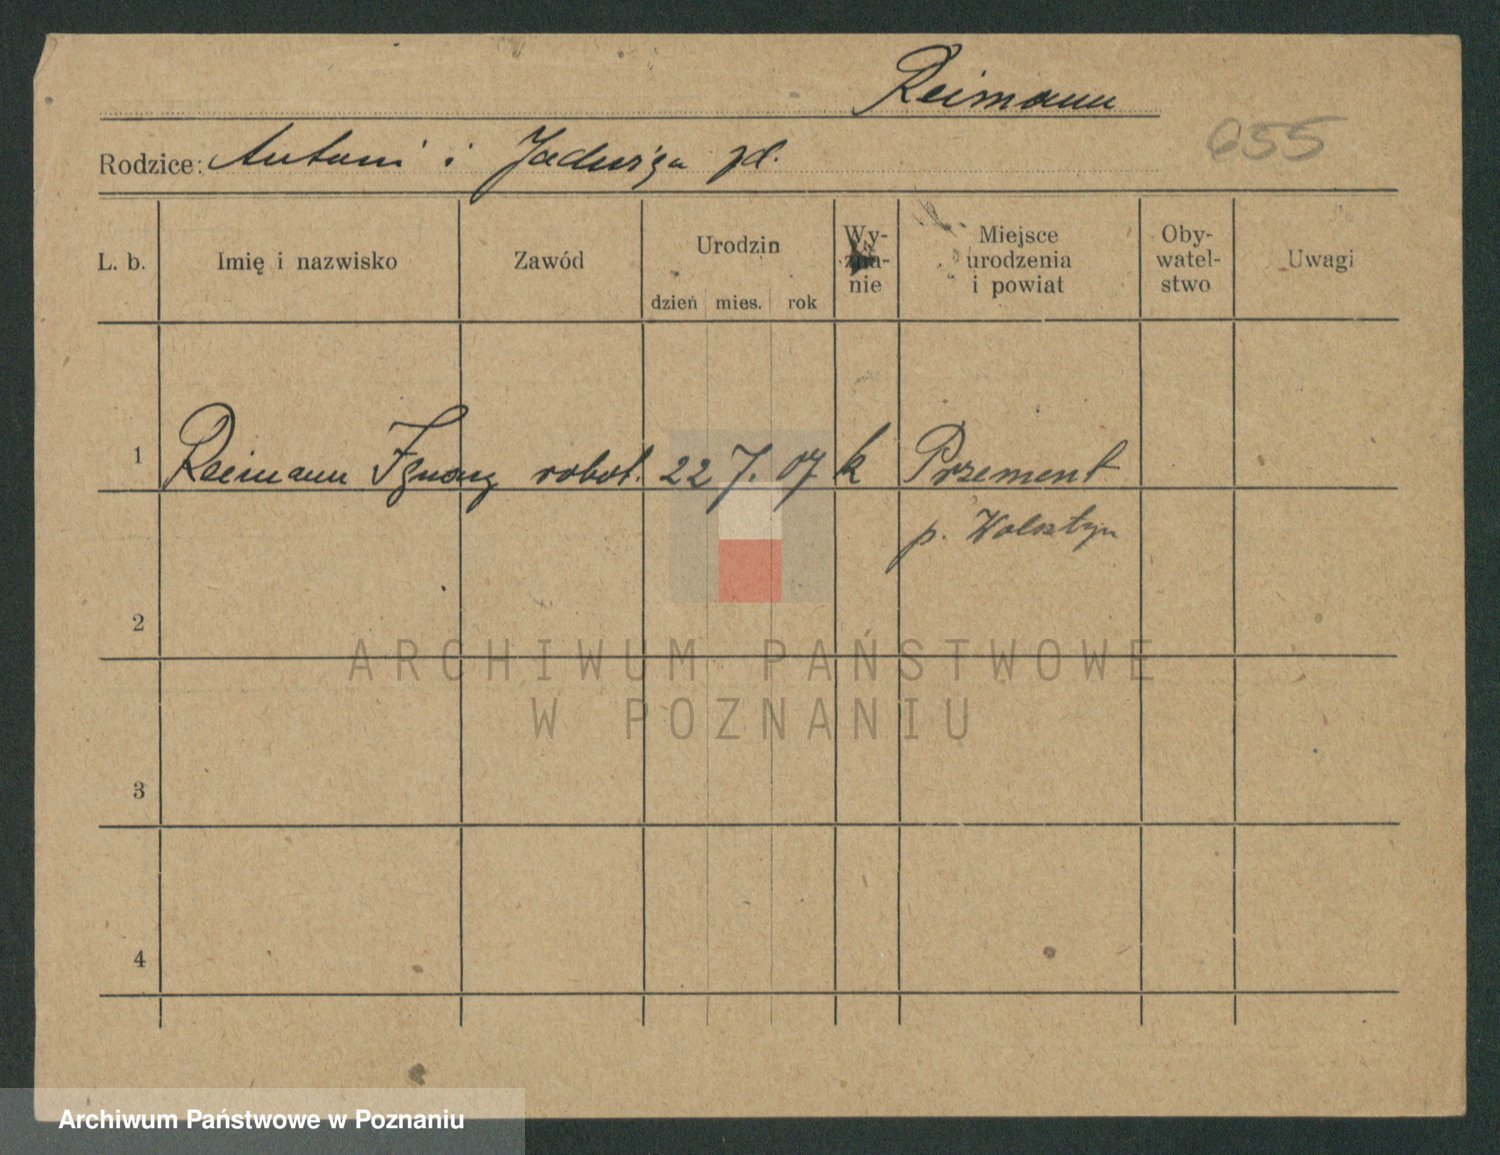 Reimann
655
Rodzice: Antoni i Jadwiga zd.
L. b. Imię i nazwisko Zawód Urodzin dzień mies. rok Wy-znanie Miejsce urodzenia i powiat Oby-watel-stwo Uwagi
1 Reimann Ignacy robot. 22 7. 07 k Przement
p. Wolsztyn
2
ARCHIWUM PAŃSTWOWE
W POZNANIU
3
4
Archiwum Państwowe w Poznaniu